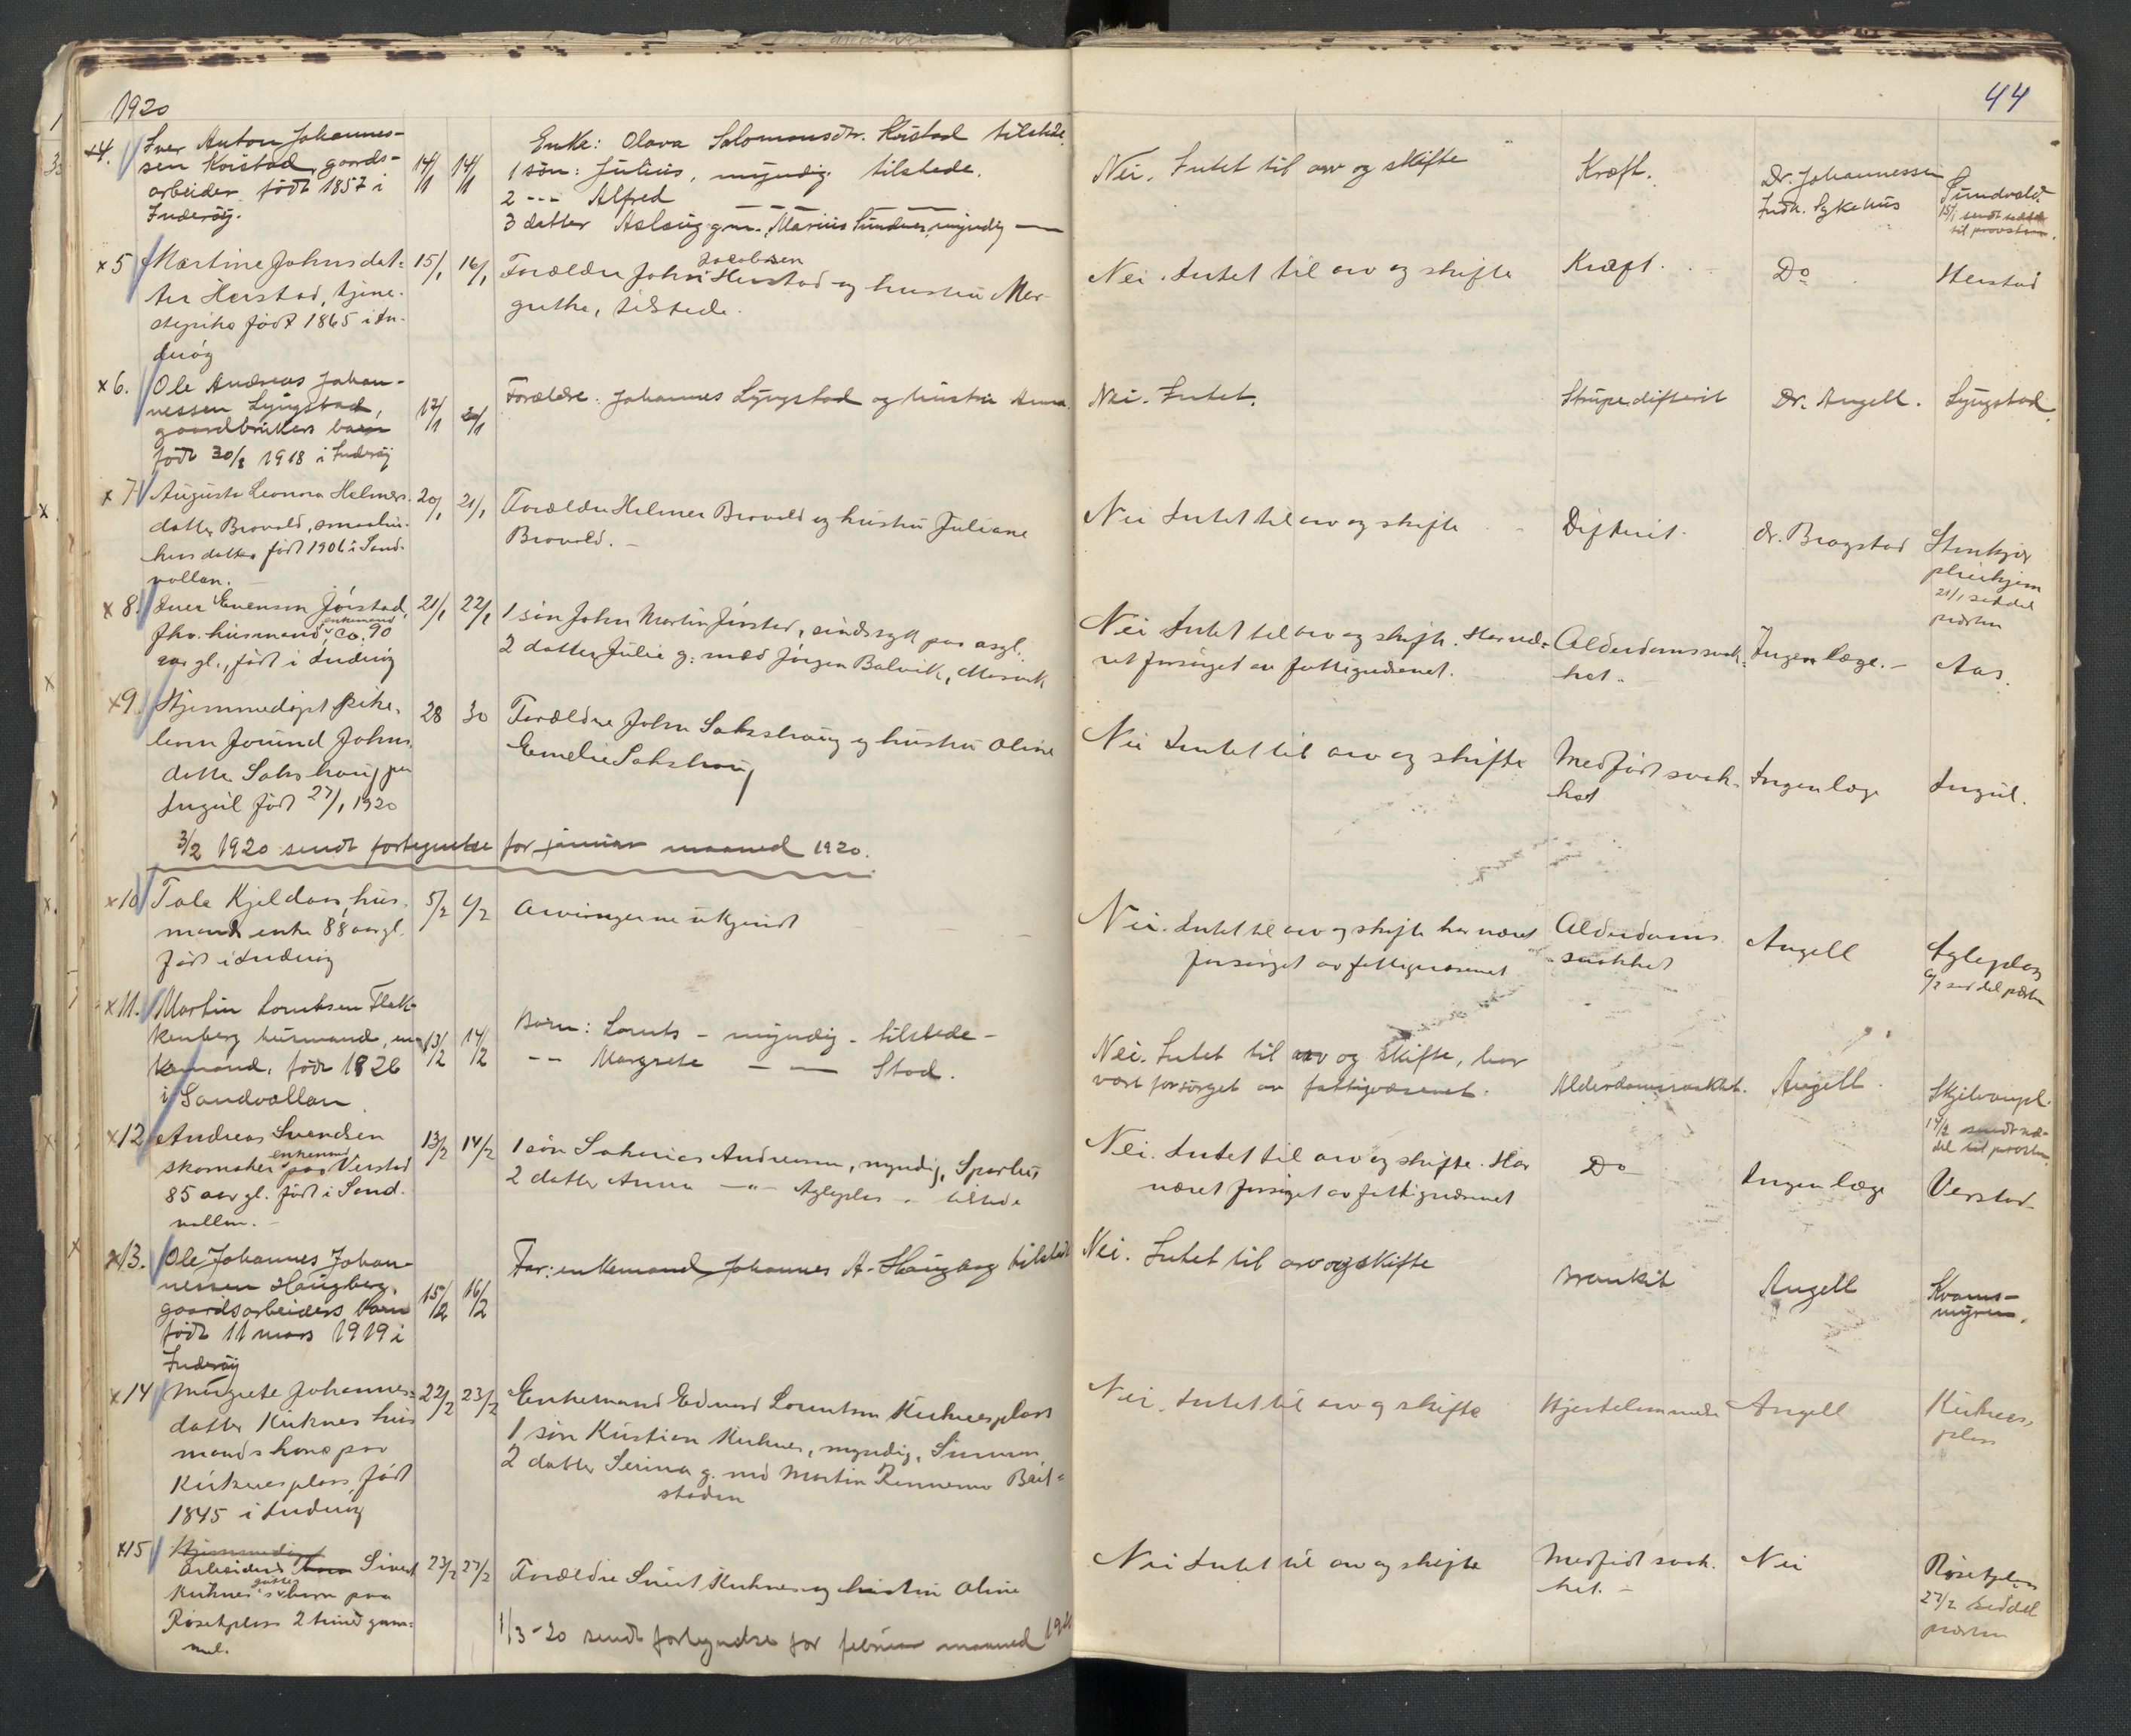 1920
44
4. Iver Anton Johannes-
sen Koistad, gaards-
arbeider født 1857 i
Inderøy.
14/1 14/1
Enke: Olava Salomonsdtr. Koistad tilstede.
1 søn: Julius, myndig tilstede.
2 -- Alfred — — —
3 datter Aslaug gm. Marius Sundnes, myndig —
Nei. Intet til arv og skifte
Kræft.
Dr. Johannessen
Indh. Sykehus
Sundvold.
15/1 sendt seddel
til provsten.
x 5 Martine Johnsdat-
ter Heistad, tjene-
stepike født 1865 i In-
derøy
15/1 16/1
Jacobsen
Forældre John Heistad og hustru Mar-
grethe, tilstede.
Nei. Intet til arv og skifte
Kræft.
Do
Heistad
x 6. Ole Andreas Johan-
nessen Lyngstad,
gaardbrukers barn
født 30/8 1918 i Inderøy
17/1 20/1
Forældre: Johannes Lyngstad og hustru Anna.
Nei. Intet.
Strupedifterit
Dr. Angell.
Lyngstad.
x 7 Augusta Leonora Helmers-
datter Brovold, smaabru-
kers datter født 1906 i Sand-
vollan.
20/1 21/1
Forældre Helmer Brovold og hustru Juliane
Brovold.
Nei Intet til arv og skifte
Difterit.
dr. Bragstad
Stenkjær
pleiehjem
21/1 seddel
præsten
x 8. Iver Evensen Jørstad,
enkemand
fhv. husmand, ca. 90
aar gl., født i Inderøy
21/1 22/1
1 søn John Martin Jørstad, sindssyk paa asyl.
2 datter Julie g. med Jørgen Balvik, Mosvik
Nei Intet til arv og skifte. Har væ-
ret forsørget av fattigvæsenet.
Alderdomssvak-
het.
Ingen læge.
Aas.
x 9. Hjemmedøpt pike-
barn Jorund Johns-
datter Sakshaug paa
Ingul født 27/1 1920
28 30
Forældre John Sakshaug og hustru Oline
Emelie Sakshaug
Nei Intet til arv og skifte
Medfødt svak-
het
Ingen læge
Ingul.
3/2 1920 sendt fortegnelse for januar maaned 1920.
x 10 Tale Kjeldaas, hus-
mands enke 88 aar gl.
født i Inderøy
5/2 6/2
Arvingerne ukjendt
Nei. Intet til arv og skifte har været
forsørget av fattigvæsenet
Alderdoms-
svakhet
Angell
Agleplas
6/2 seddel præsten
x 11. Martin Lorentsen Flek-
kenberg husmand, en-
kemand, født 1826
i Sandvollan
13/2 14/2
Børn: Lorents - myndig - tilstede -
-- Margrete — — Stod.
Nei. Intet til arv og skifte, har
vært forsørget av fattigvæsenet.
Alderdomssvakhet.
Angell.
Skjelvanpl.
14/2 sendt sed-
del til præsten.
x 12 Andreas Svendsen
enkemand
skomaker paa Verstad
85 aar gl. født i Sand-
vollan.
13/2 14/2
1 søn Sakarias Andreassen, myndig, Sparbu
2 datter Anna -"- Agleplas - tilstede
Nei. Intet til arv og skifte. Har
været forsørget av fattigvæsenet
Do
Ingen læge
Verstad
x 13. Ole Johannes Johan-
nessen Haugberg,
gaardsarbeiders barn
født 11 mars 1919 i
Inderøy
15/2 16/2
Far: enkemand Johannes A. Haugberg tilstede
Nei. Intet til arv og skifte
Bronkit
Angell
Kvams-
myren.
x 14 Margrete Johannes-
datter Kirknes hus-
mandskone paa
Kirknesplass, født
1845 i Inderøy
22/2 23/2
Enkemand Edvard Lorentsen Kirknesplass
1 søn Kristian Kirknes, myndig,
2 datter Serina g. med Martin Rennemo Beit-
staden
Nei. Intet til arv og skifte
Hjertelammelse
Angell
Kirknes-
plass
x 15 Hjemmedøpt
arbeider barn Sivert
gutte
Kirknes's barn paa
Røsetplass 2 timer gam-
mel.
23/2 27/2
Forældre Sivert Kirknes og hustru Oline
Nei Intet til arv og skifte
Medfødt svak-
het.
Nei
Røsetplass
27/2 seddel
præsten
1/3-20 sendt fortegnelse for februar maaned 1920